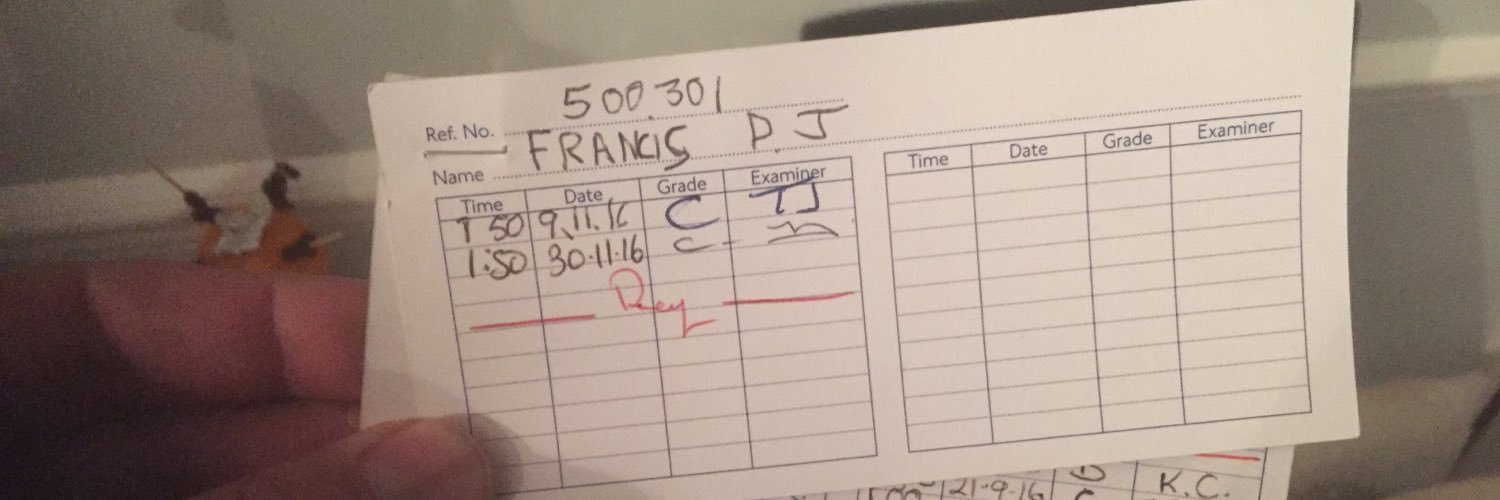 500.301
Ref. No.
FRANCIS P.J
Name
Time Date Grade Examiner
1 50 9.11.16 C TJ
1:50 30.11.16 C -
Time Date Grade Examiner
21.9.16 D
C K.C.